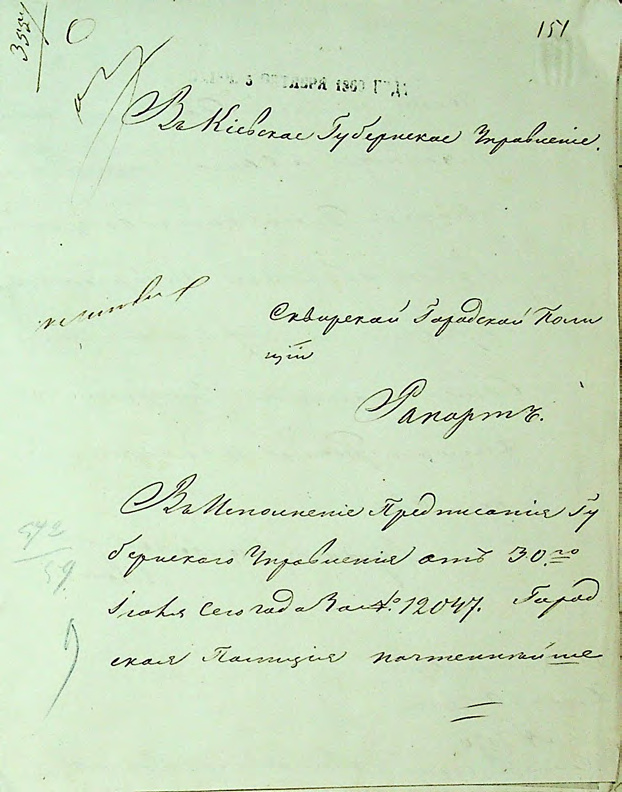 151
3554
Въ Кіевское Губернское Управленіе.
Сквирской Городской Поли
ціи
Рапортъ.
Въ Исполненіе Предписанія Гу
бернского Управленія отъ 30.го
Іюля сего года За № 12047. Город
ская Полиція почтеннѣйше
542
59